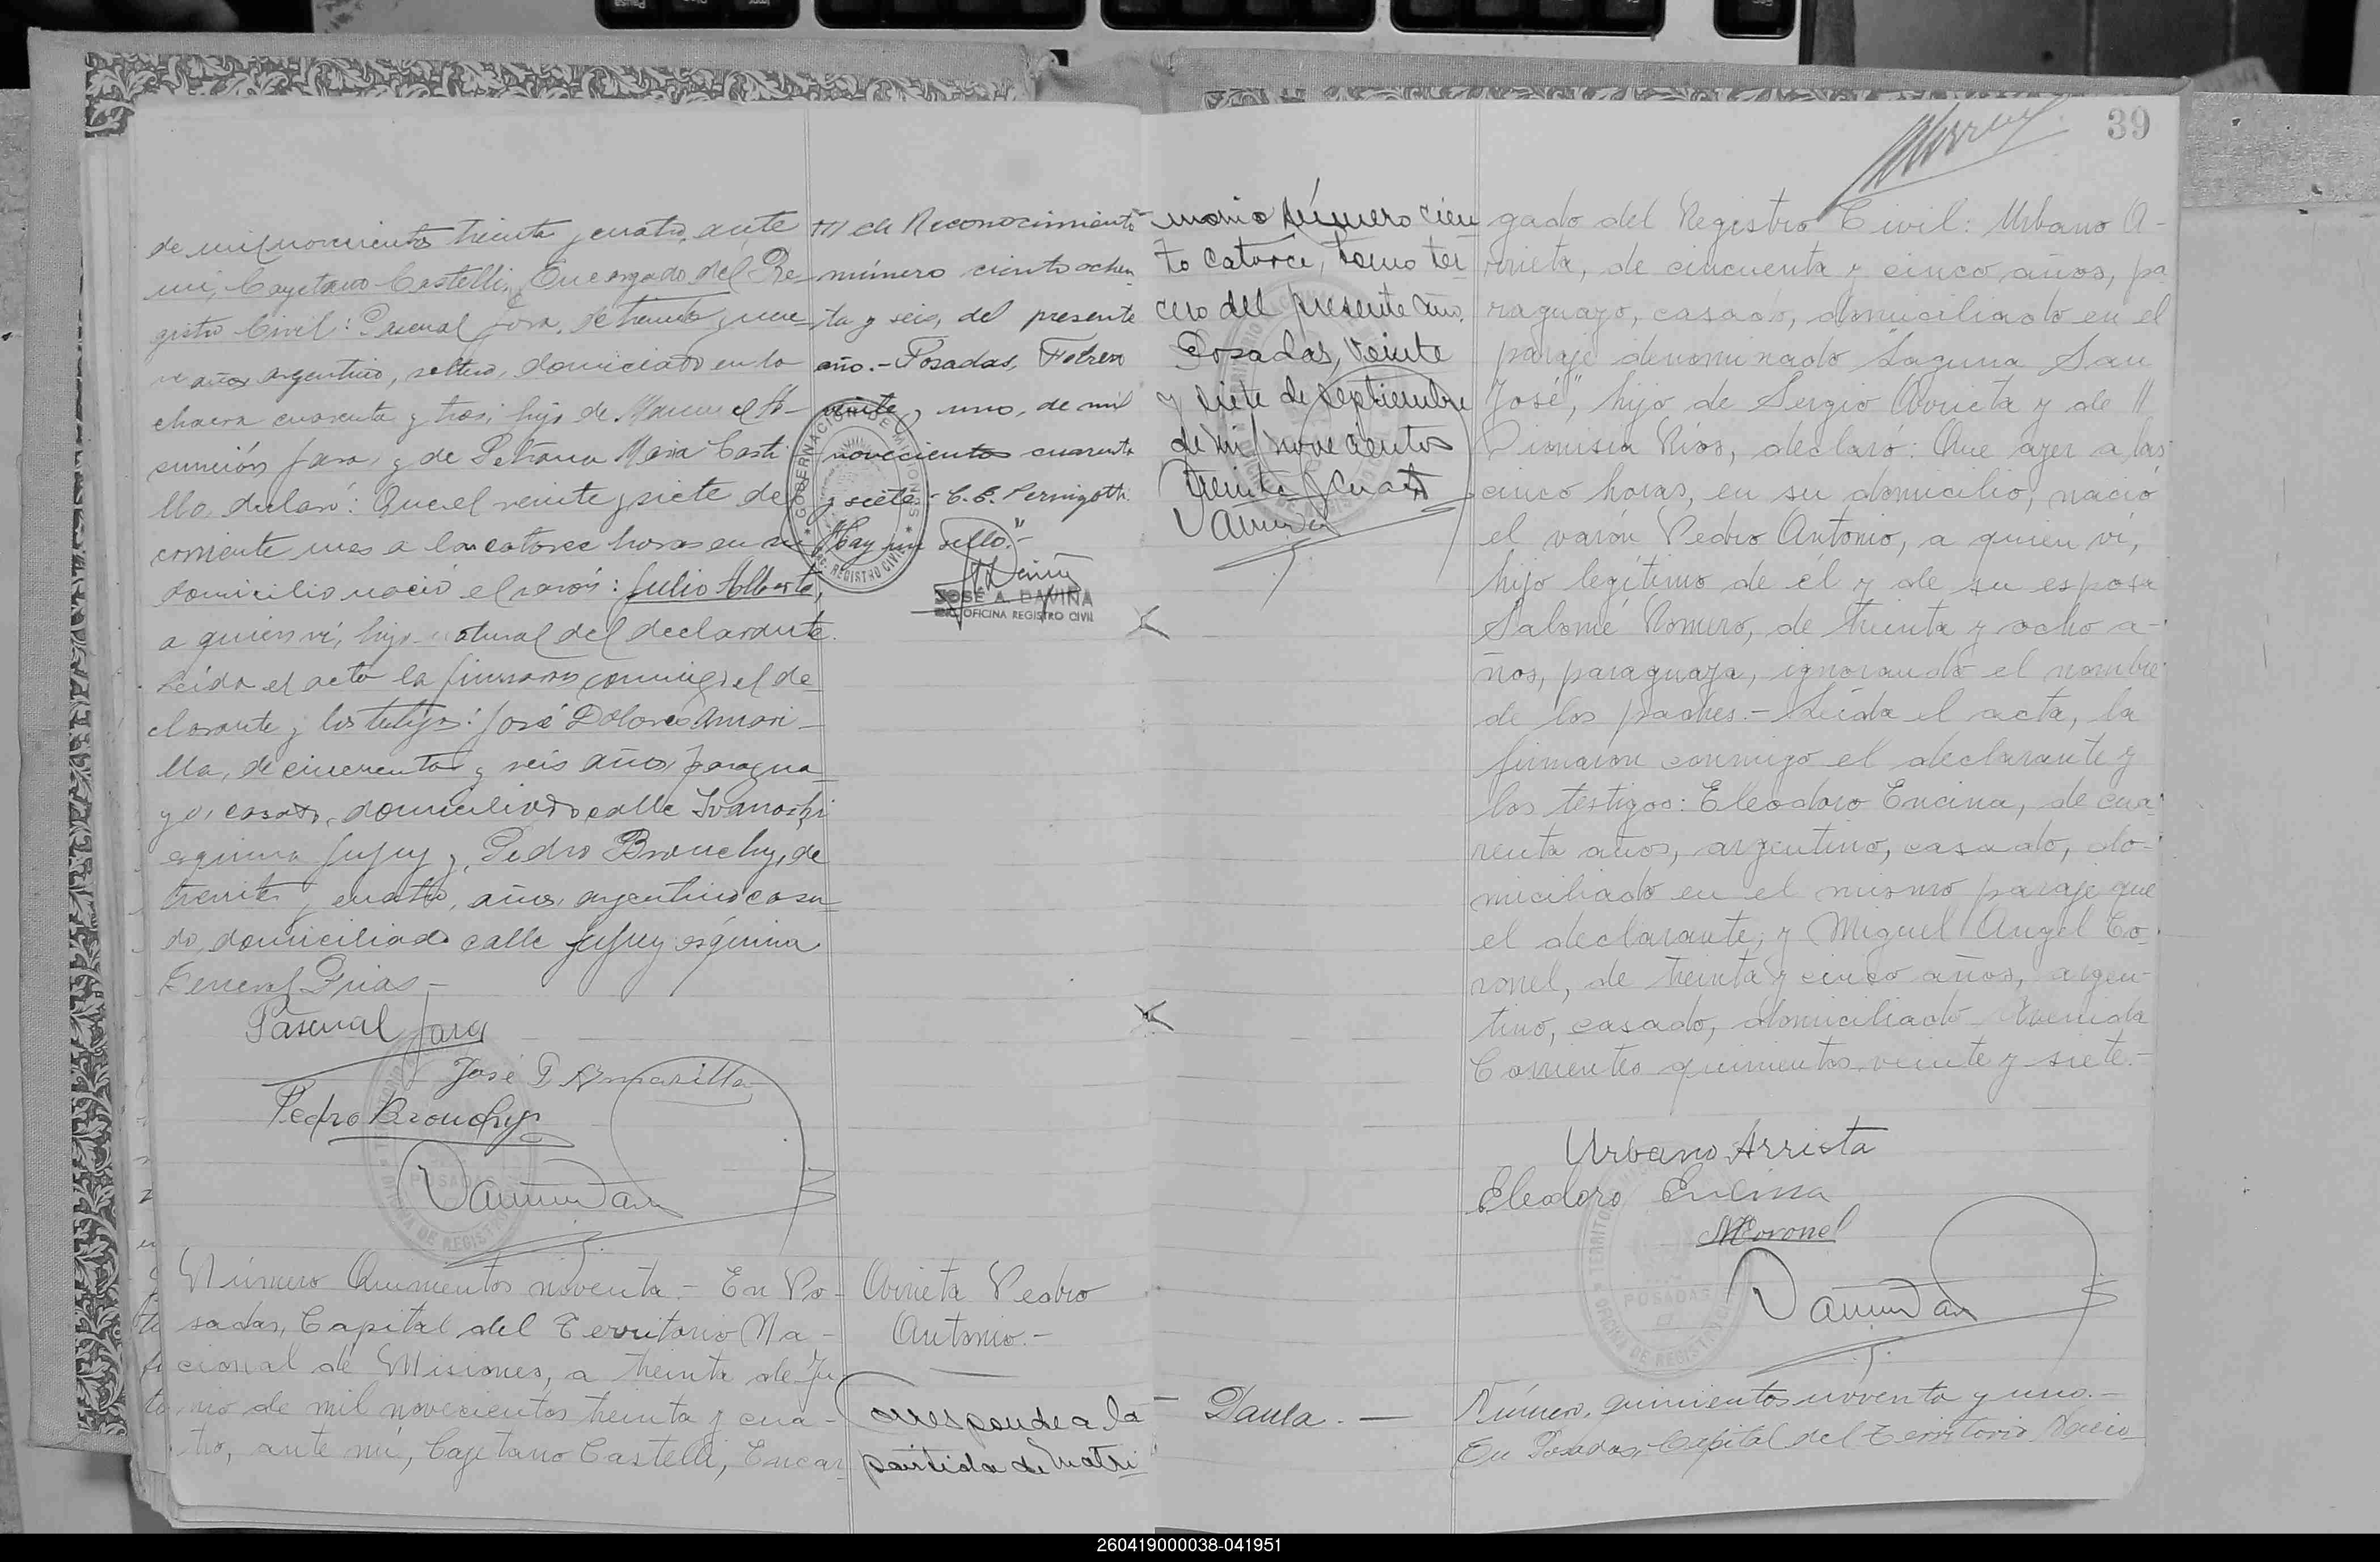 de mil novecientos treinta y cuatro, ante
mi, Cayetano Castelli, Encargado del Re-
gistro Civil: Pascual Jara, de treinta y nue-
ve años argentino, soltero, domiciliado en la
chacra cuarenta y tres, hijo de Manuel A-
sunción Jara, y de Petrona Maria Casti-
llo, declaró: Que el veinte y siete del
corriente mes a las catorce horas en su
domicilio nació el varón: Julio Alberto,
a quien ví, hijo natural del declarante.
Leida el acta la firmaron conmigo el de-
clarante y los testigos: José Dolores Amari-
lla, de cincuenta y seis años, paragua-
yo, casado, domiciliado calle Ivanoski
esquina Jujuy y, Pedro Brouchy, de
treinta y cuatro, años, argentino casa-
do, domiciliado calle Jujuy esquina
General Frias -
Pascual Jara
José D Amarilla
Pedro Brouchy
POSADAS
OFICINA DE REGISTRO
Número Quinientos noventa.- En Po-
sadas, Capital del Territorio Na-
cional de Misiones, a treinta de Ju-
nio de mil novecientos treinta y cua-
tro, ante mí, Cayetano Castelli, Encar-
de Reconocimiento
número ciento ochen
ta y seis, del presente
año.- Posadas, Febrero
veinte y uno, de mil
novecientos cuarenta
y siete.- C. B. Pernigotti.
Hay un sello."-
GOBERNACION DE MISIONES
REGISTRO CIVIL
JOSÉ A. DAVIÑA
OFICINA REGISTRO CIVIL
Arrieta Pedro
Antonio.-
Corresponde a la
partida de matri
monio número cien
to catorce, tomo ter
cero del presente año.
Posadas, veinte
y siete de septiembre
de mil novecientos
treinta y cuatro
39
gado del Registro Civil: Urbano A-
rrieta, de cincuenta y cinco años, pa
raguayo, casado, domiciliado en el
paraje denominado "Laguna San
José", hijo de Sergio Arrieta y de "
Dionisia Rios, declaró: Que ayer a las
cinco horas, en su domicilio, nació
el varón Pedro Antonio, a quien ví,
hijo legítimo de el y de su esposa
Salomé Romero, de treinta y ocho a-
ños, paraguaya, ignorando el nombre
de los padres.- Leída el acta, la
firmaron conmigo el declarante y
los testigos: Eleodoro Encina, de cua-
renta años, argentino, casado, do-
miciliado en el mismo paraje que
el declarante, y Miguel Angel Co-
ronel, de treinta y cinco años, argen-
tino, casado, domiciliado Avenida
Corrientes quinientos veinte y siete.-
Urbano Arrieta
Eleodoro Encina
MCoronel
TERRITORIO
POSADAS
OFICINA DE REGISTRO CIVIL
Daula.-
Número, quinientos noventa y uno.-
En Posadas, Capital del Territorio Nacio-
260419000038-041951